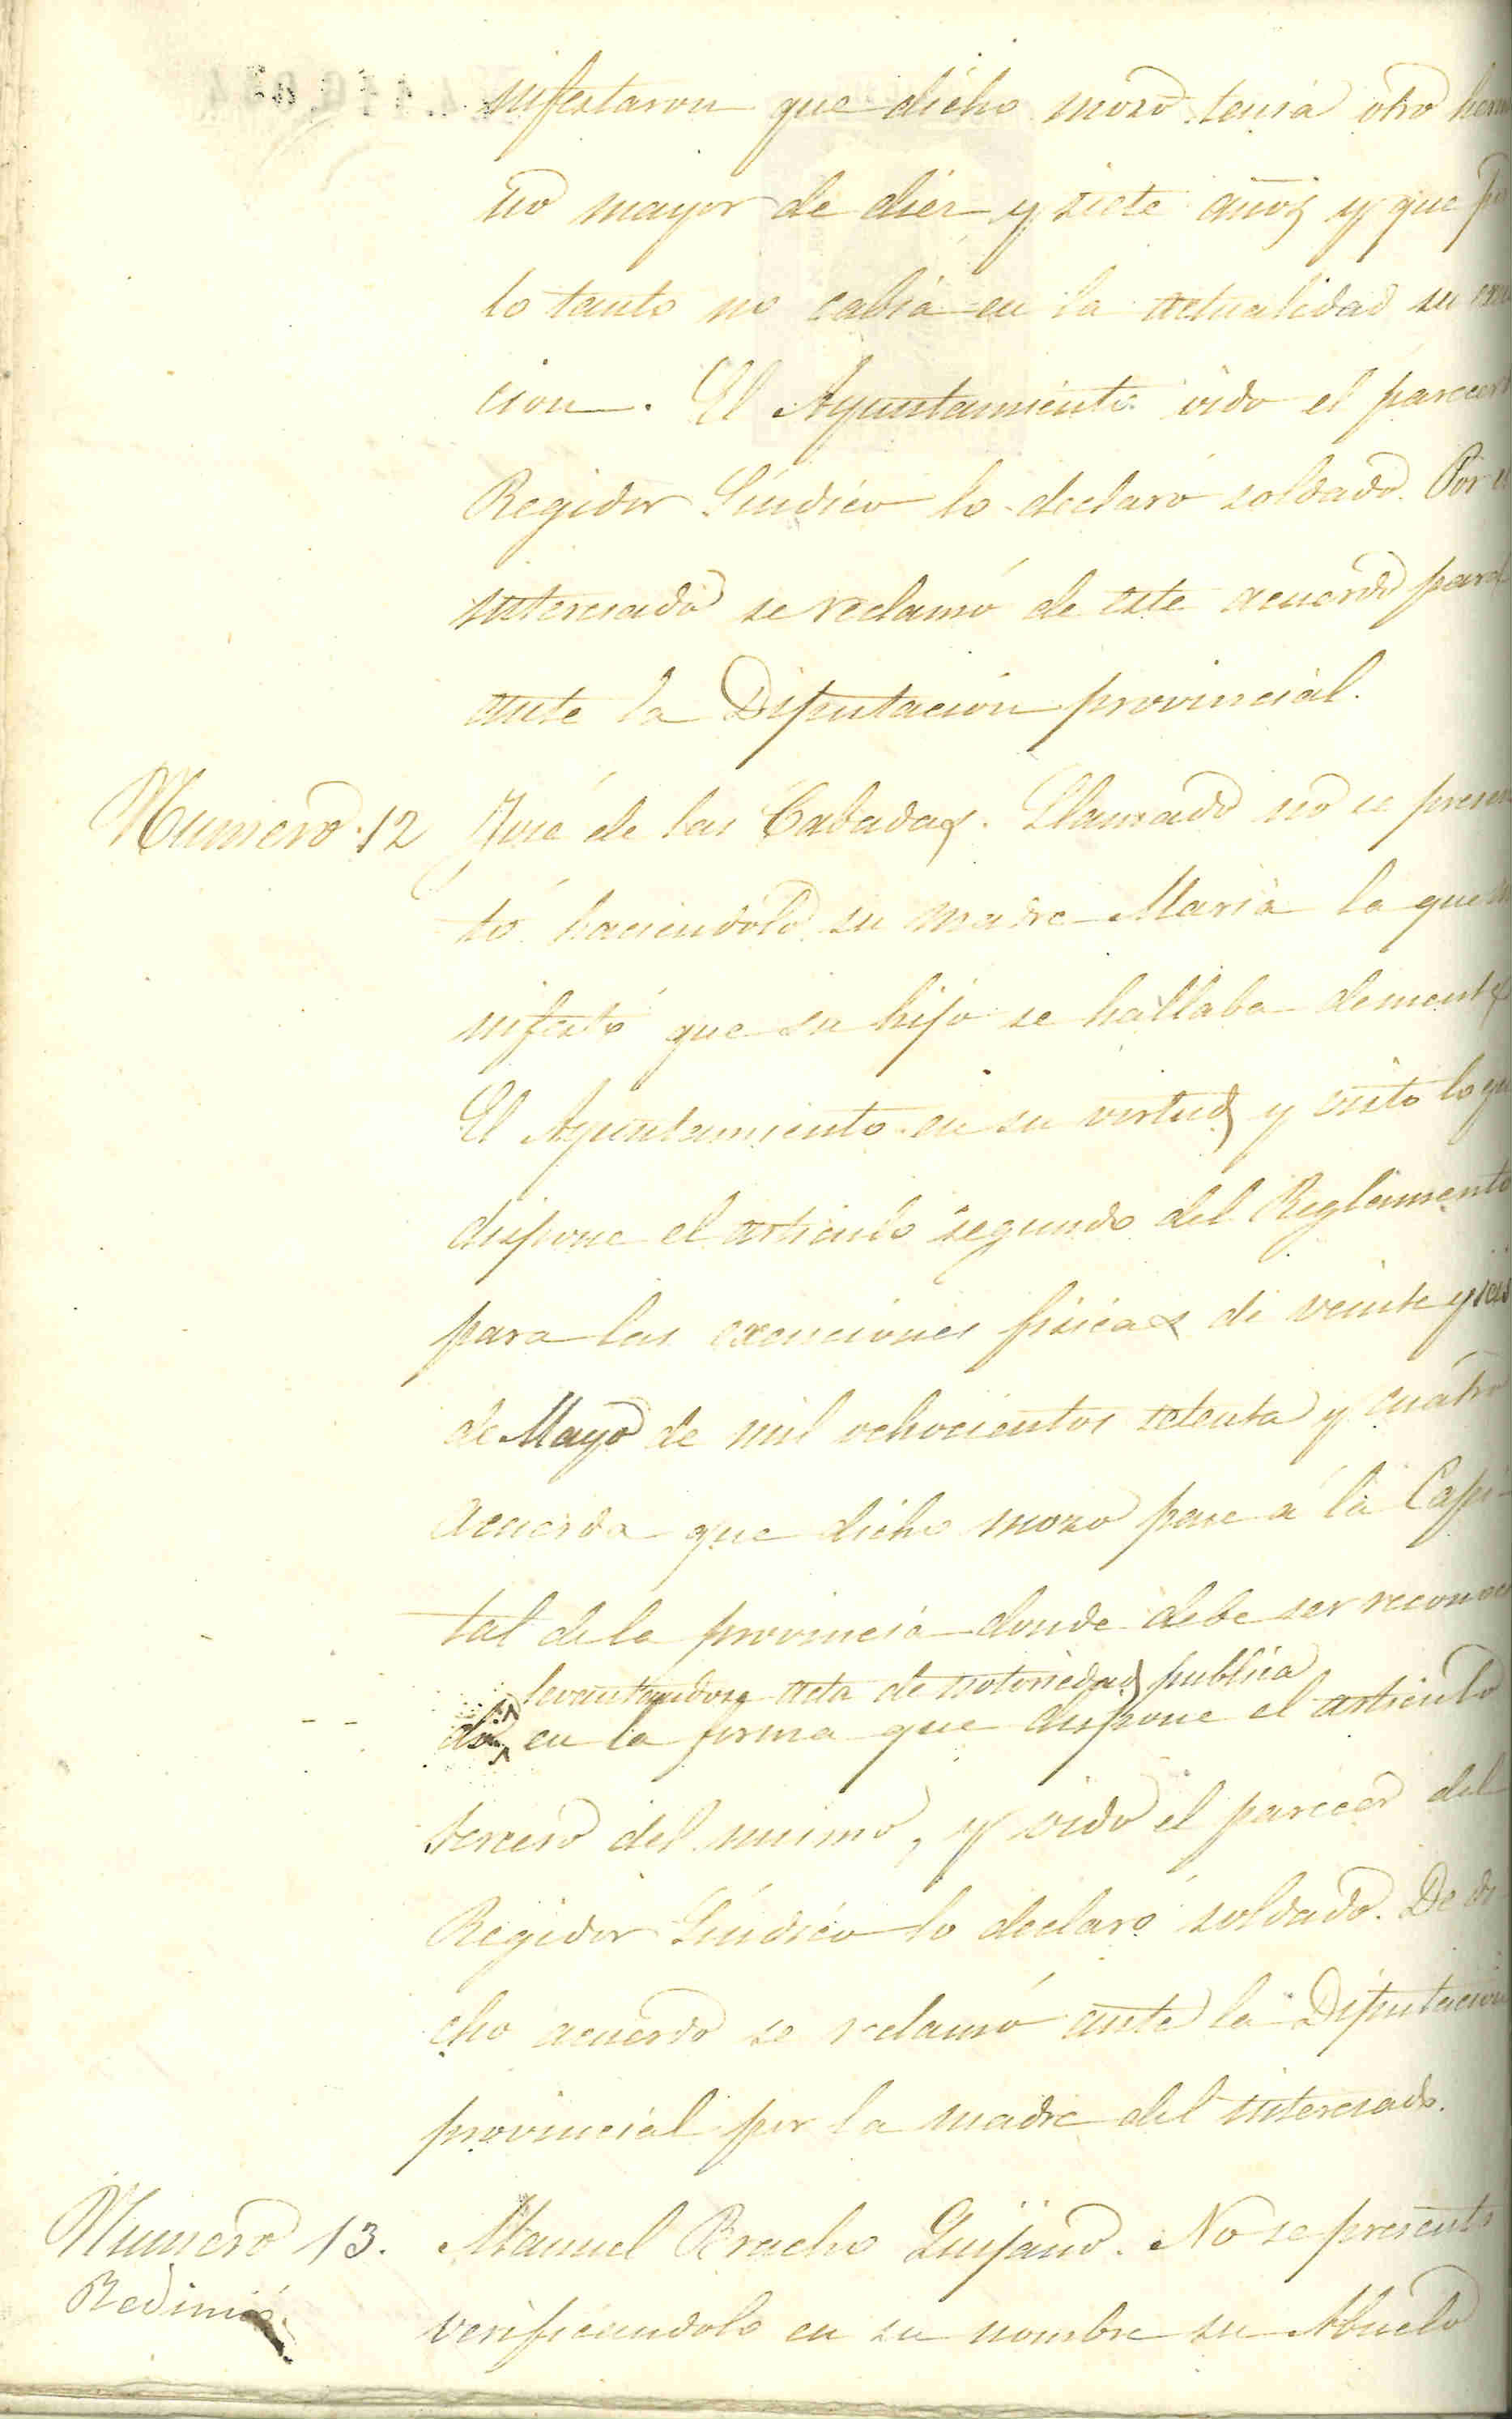 nifestaron que dicho mozo tenia otro herma
no mayor de diez y siete años y que por
lo tanto no cabia en la actualidad su exen
cion. El Ayuntamiento oido el parecer
Regidor Síndico lo declaró soldado. Por el
interesado se reclamó de este acuerdo para
ante la Diputacion provincial.
Numero 12 José de las Cabadas. Llamado no se presen
tó haciendolo su madre Maria la que ma
nifestó que su hijo se hallaba demente
El Ayuntamiento en su virtud y visto lo que
dispone el articulo segundo del Reglamento
para las exenciones fisicas de veinte y seis
de Mayo de mil ochocientos setenta y cuatro
acuerda que dicho mozo pase á la Capi-
tal de la provincia donde debe ser reconoci
levantandose acta de notoriedad publica
do en la forma que dispone el articulo
tercero del mismo, y oido el parecer del
Regidor Síndico lo declaró soldado. De di
cho acuerdo se reclamó ante la Diputacion
provincial por la madre del interesado.
Numero 13. Manuel Bracho Quijano. No se presentó
Redimió. verificandolo en su nombre su Abuelo